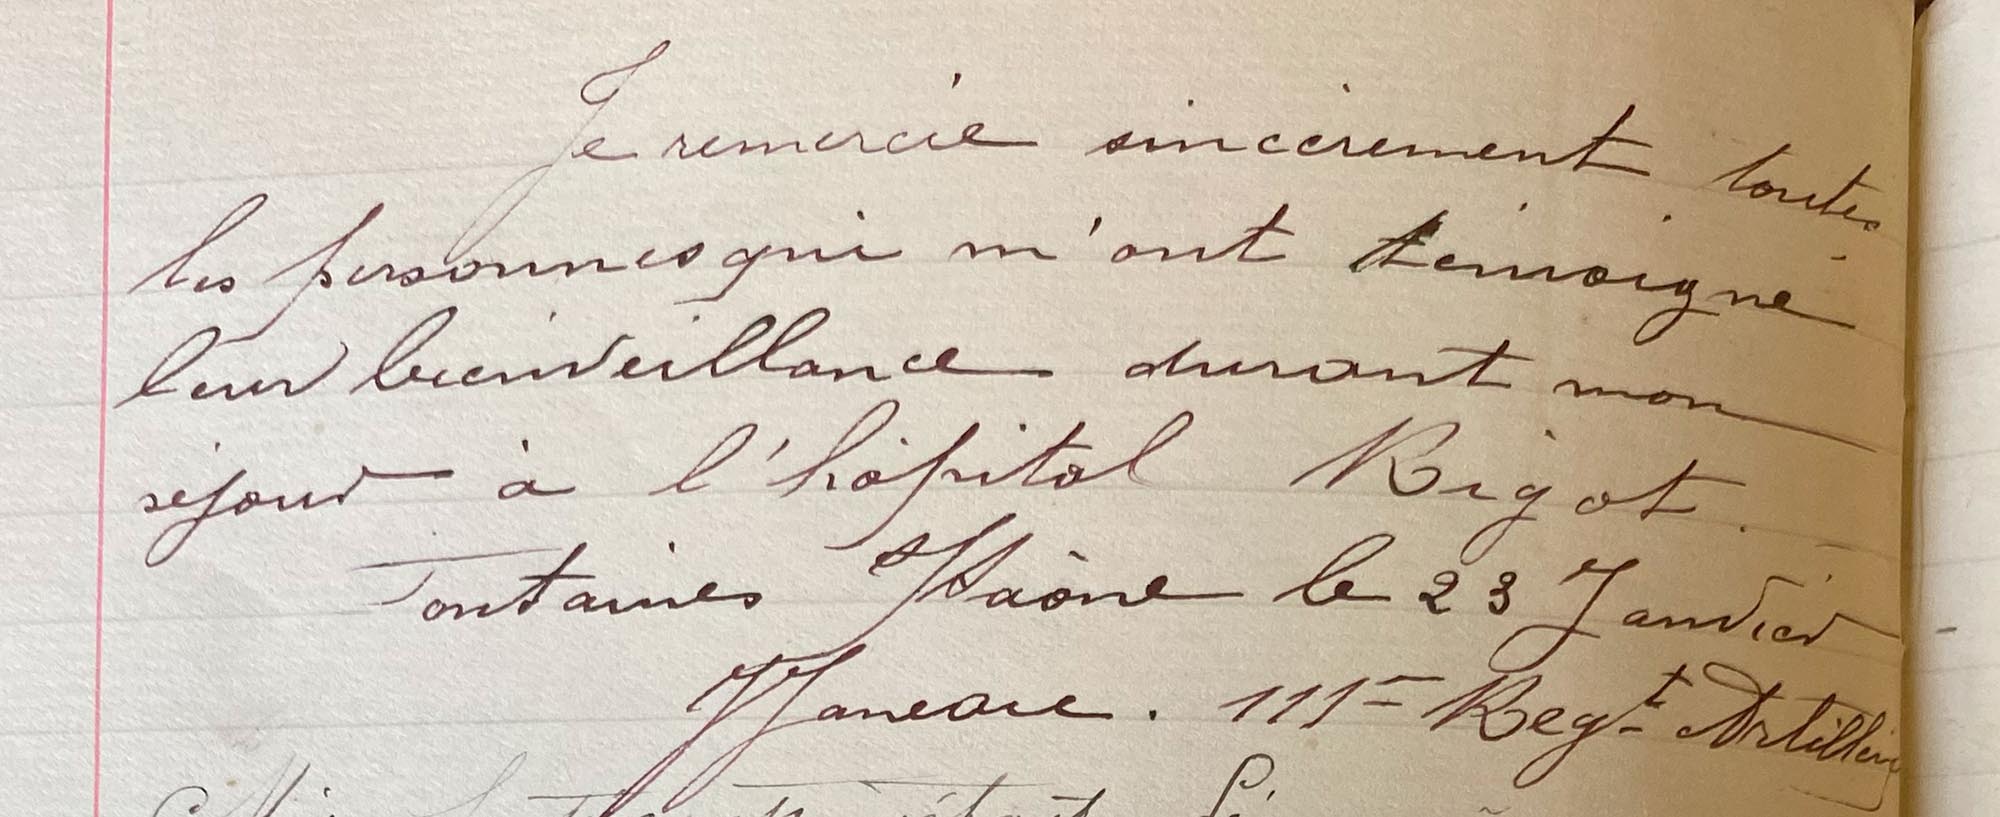 Je remercie sincèrement toutes
les personnes qui m'ont témoigné
leur bienveillance durant mon
séjour à l'hôpital Rigot.
Fontaines s/Saône le 23 Janvier
111e Regt Artillerie